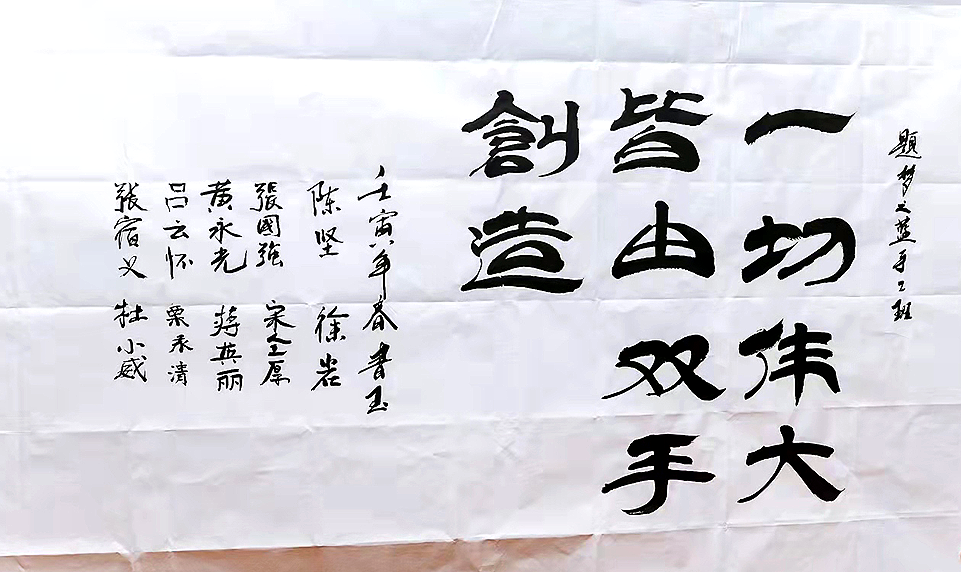 题梦之蓝手工班
一切伟大
皆由双手
創造
壬寅年春書玉
陈坚 徐岩
張國強 宋金厚
黄永光 蒋英丽
吕云怀 栗永清
張宿义 杜小威